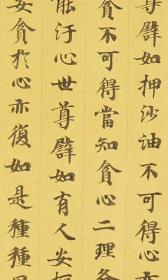 尊譬如押沙油不可得心
貪不可得當知貪心二理各
能汙心世尊譬如有人安
安貪於心亦復如是種種